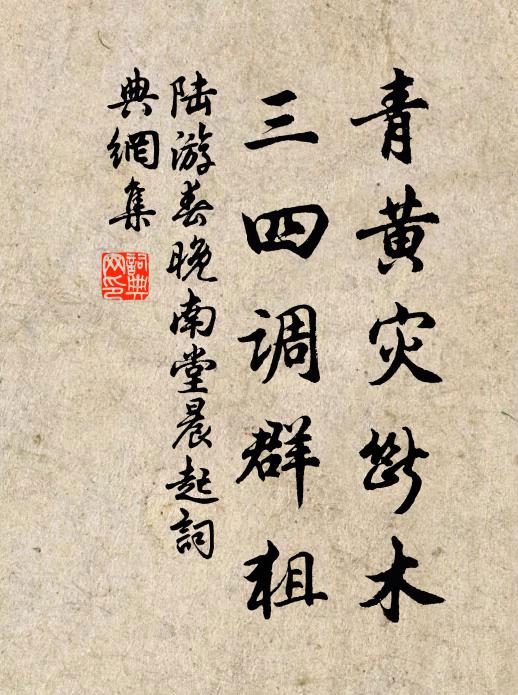 青黄灾断木
三四调群狙
陆游春晚南堂晨起詞
典網集
詞典
网印